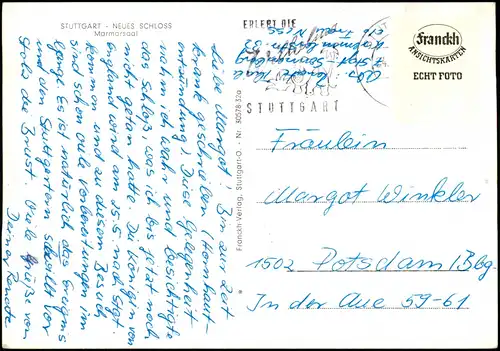 STUTTGART - NEUES SCHLOSS
Marmorsaal
Liebe Margot! Bin zur Zeit
krank geschrieben (Hornhaut-
entzündung) Diese Gelegenheit
nahm ich wahr und besichtigte
das Schloß, was ich bis jetzt noch
nicht getan hatte. Die Königin von
England wird am 25.5. nach Stgt.
kommen und zu diesem Besuch
sind schon viele Vorbereitungen im
Gange. Es ist natürlich das Ereignis
und den Stuttgartern schwillt vor
Stolz die Brust. Viele Grüße von
Deiner Renate
Franckh-Verlag, Stuttgart-O. · Nr. 3058-32a
ERLEBT DIE
STUTTGART
Abs.: Renate
7 Stgt
Franckh
ANSICHTSKARTEN
ECHT FOTO
Fräulein
Margot Winkler
1502 Potsdam/Bbg
In der Aue 59-61